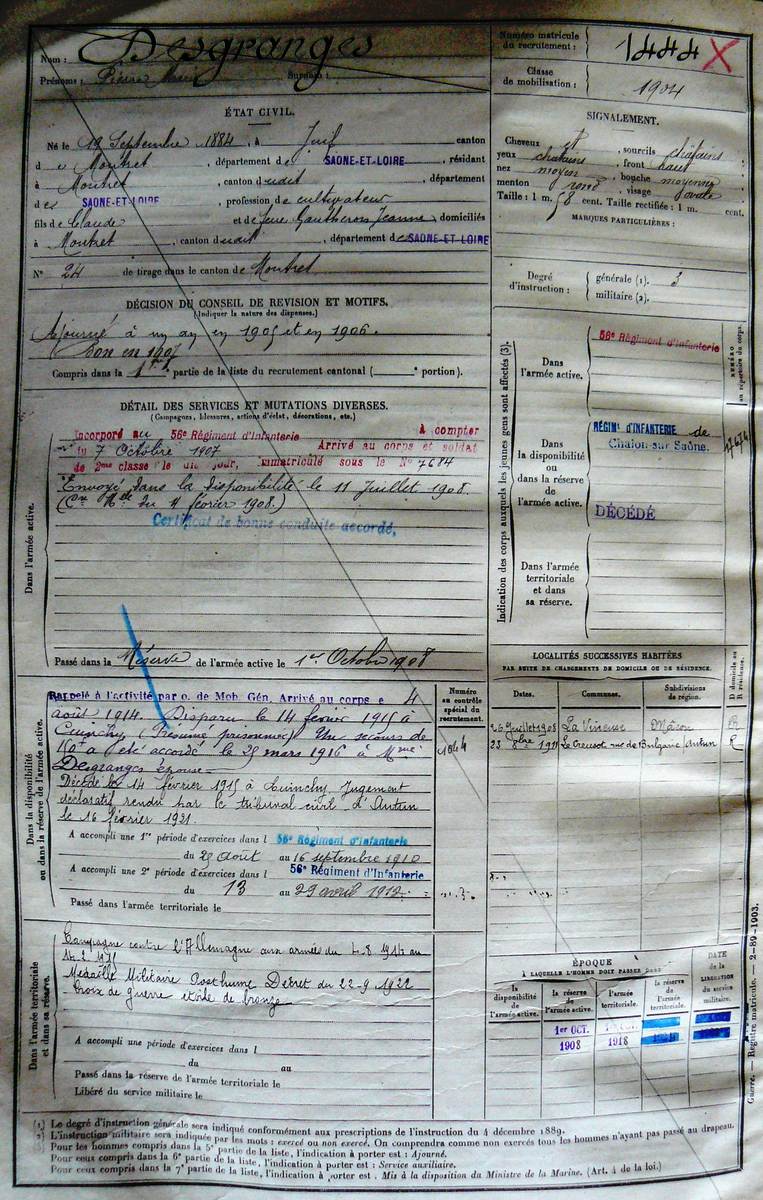 Nom : Desgranges
Prénoms : Pierre Marie Surnoms :
Numéro matricule du recrutement : 1444 X
Classe de mobilisation : 1904
ÉTAT CIVIL.
Né le 19 Septembre 1884, à Juif, canton
de Montret, département de SAONE-ET-LOIRE, résidant
à Montret, canton dudit, département
de SAONE-ET-LOIRE, profession de cultivateur
fils de Claude et de feue Gautheron Jeanne, domiciliés
à Montret, canton dudit, département de SAONE-ET-LOIRE
N° 24 de tirage dans le canton de Montret
SIGNALEMENT.
Cheveux et, sourcils châtains
yeux châtains, front haut
nez moyen, bouche moyenne
menton rond, visage ovale
Taille : 1 m. 58 cent. Taille rectifiée : 1 m. cent.
MARQUES PARTICULIÈRES :
Degré d'instruction : générale (1). 3
militaire (2).
DÉCISION DU CONSEIL DE REVISION ET MOTIFS.
(Indiquer la nature des dispenses.)
Ajourné à un an en 1905 et en 1906.
Bon en 1907
Compris dans la 1re partie de la liste du recrutement cantonal ( portion).
DÉTAIL DES SERVICES ET MUTATIONS DIVERSES.
(Campagnes, blessures, actions d'éclat, décorations, etc.)
Dans l'armée active.
Incorporé au 56e Régiment d'Infanterie à compter
du 7 Octobre 1907 Arrivé au corps et soldat
de 2me classe le dit jour, immatriculé sous le No 7684
Envoyé dans la disponibilité le 11 Juillet 1908.
(Cre Mlle du 4 février 1908.)
Certificat de bonne conduite accordé.
Passé dans la Réserve de l'armée active le 1er Octobre 1908
Indication des corps auxquels les jeunes gens sont affectés (3).
Dans l'armée active. 56e Régiment d'Infanterie
NUMÉRO au répertoire du corps.
Dans la disponibilité ou dans la réserve de l'armée active.
RÉGIMt D'INFANTERIE de
Chalon-sur-Saône.
DÉCÉDÉ
Dans l'armée territoriale et dans sa réserve.
LOCALITÉS SUCCESSIVES HABITÉES
PAR SUITE DE CHANGEMENTS DE DOMICILE OU DE RÉSIDENCE.
Dates. Communes. Subdivisions de région. D domicile ou R résidence.
26 Juillet 1908 La Vineuse Mâcon R
23 8bre 1911 Le Creusot rue de Bulgarie Autun R
Dans la disponibilité ou dans la réserve de l'armée active.
Numéro au contrôle spécial du recrutement.
1844
Rappelé à l'activité par o. de Mob. Gén. Arrivé au corps le 4
août 1914. Disparu le 14 février 1915 à
Cuinchy (Présumé prisonnier). Un secours de
150f a été accordé le 25 mars 1916 à Mme
Desgranges épouse
Décédé le 14 février 1915 à Cuinchy Jugement
déclaratif rendu par le tribunal civil d'Autun
le 16 février 1921.
A accompli une 1re période d'exercices dans l 56e Régiment d'Infanterie
du 25 août au 16 septembre 1910
A accompli une 2e période d'exercices dans l 56e Régiment d'Infanterie
du 13 au 29 avril 1912
Passé dans l'armée territoriale le
Dans l'armée territoriale et dans sa réserve.
Campagne contre l'Allemagne aux armées du 4.8 1914 au
14.2.1915
Médaille Militaire Posthume Décret du 22-9-1922
Croix de guerre étoile de bronze
A accompli une période d'exercices dans l
du au
Passé dans la réserve de l'armée territoriale le
Libéré du service militaire le
ÉPOQUE
À LAQUELLE L'HOMME DOIT PASSER DANS
la disponibilité de l'armée active. la réserve de l'armée active. l'armée territoriale. la réserve de l'armée territoriale.
DATE de la LIBÉRATION du service militaire.
1er OCT.
1908 1918
Guerre. — Registre matricule. — 2-89-1903.
(1) Le degré d'instruction générale sera indiqué conformément aux prescriptions de l'instruction du 4 décembre 1889.
(2) L'instruction militaire sera indiquée par les mots : exercé ou non exercé. On comprendra comme non exercés tous les hommes n'ayant pas passé au drapeau.
(3) Pour les hommes compris dans la 5e partie de la liste, l'indication à porter est : Ajourné.
Pour ceux compris dans la 6e partie de la liste, l'indication à porter est : Service auxiliaire.
Pour ceux compris dans la 7e partie de la liste, l'indication à porter est : Mis à la disposition du Ministre de la Marine. (Art. 4 de la loi.)